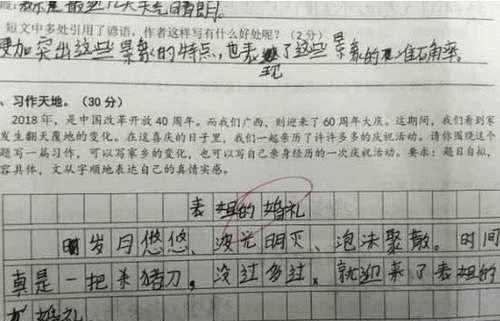 最近几天天气晴朗。
短文中多处引用了谚语，作者这样写有什么好处呢？（2分）
更加突出这些景象的特点，也表现了这些景象的准确率。
、习作天地。（30分）
2018年，是中国改革开放40周年。而我们广西，则迎来了60周年大庆。这期间，我们看到家
发生翻天覆地的变化。在这喜庆的日子里，我们一起亲历了许许多多的庆祝活动。请你围绕这个
题写一篇习作，可以写家乡的变化，也可以写自己亲身经历的一次庆祝活动。要求：题目自拟，
容具体，文从字顺地表达自己的真情实感。
表姐的婚礼
岁月悠悠、波光明灭、泡沫聚散。时间
真是一把杀猪刀，没过多过，就迎来了表姐的
婚礼